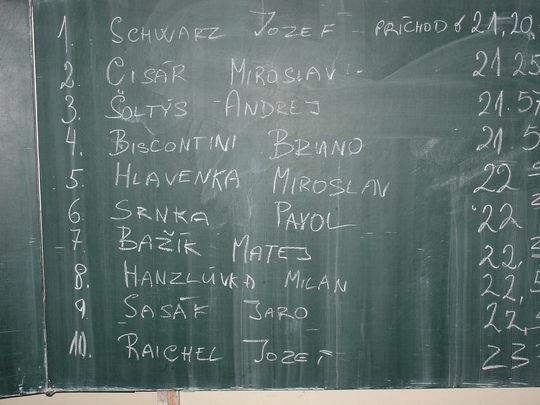 1. SCHWARZ JOZEF PRÍCHOD o 21,20
2. CISÁR MIROSLAV - 21 25
3. ŠOLTÝS ANDREJ 21.57
4. BISCONTINI BRUNO 21 5
5. HLAVENKA MIROSLAV 22
6. SRNKA PAVOL 22
7. BAŽÍK MATEJ 22,
8. HANZLÚVKA MILAN 22,5
9 SASÁK JARO 22,
10. RAICHEL JOZEF 23